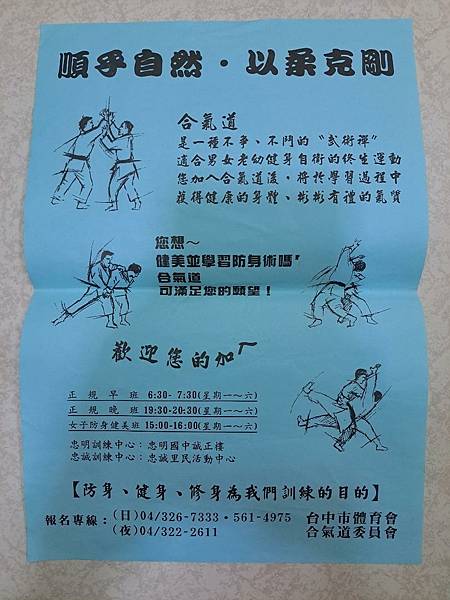 順乎自然・以柔克剛
合氣道
是一種不爭、不鬥的〝武術禪〞
適合男女老幼健身自衛的終生運動
您加入合氣道後，將於學習過程中
獲得健康的身體、彬彬有禮的氣質
您想～
健美並學習防身術嗎？
合氣道
可滿足您的願望！
歡迎您的加入
正規早班 6:30-7:30(星期一～六)
正規晚班 19:30-20:30(星期一～六)
女子防身健美班 15:00-16:00(星期一～六)
忠明訓練中心：忠明國中誠正樓
忠誠訓練中心：忠誠里民活動中心
【防身、健身、修身為我們訓練的目的】
報名專線：(日)04/326-7333・561-4975
(夜)04/322-2611
台中市體育會
合氣道委員會